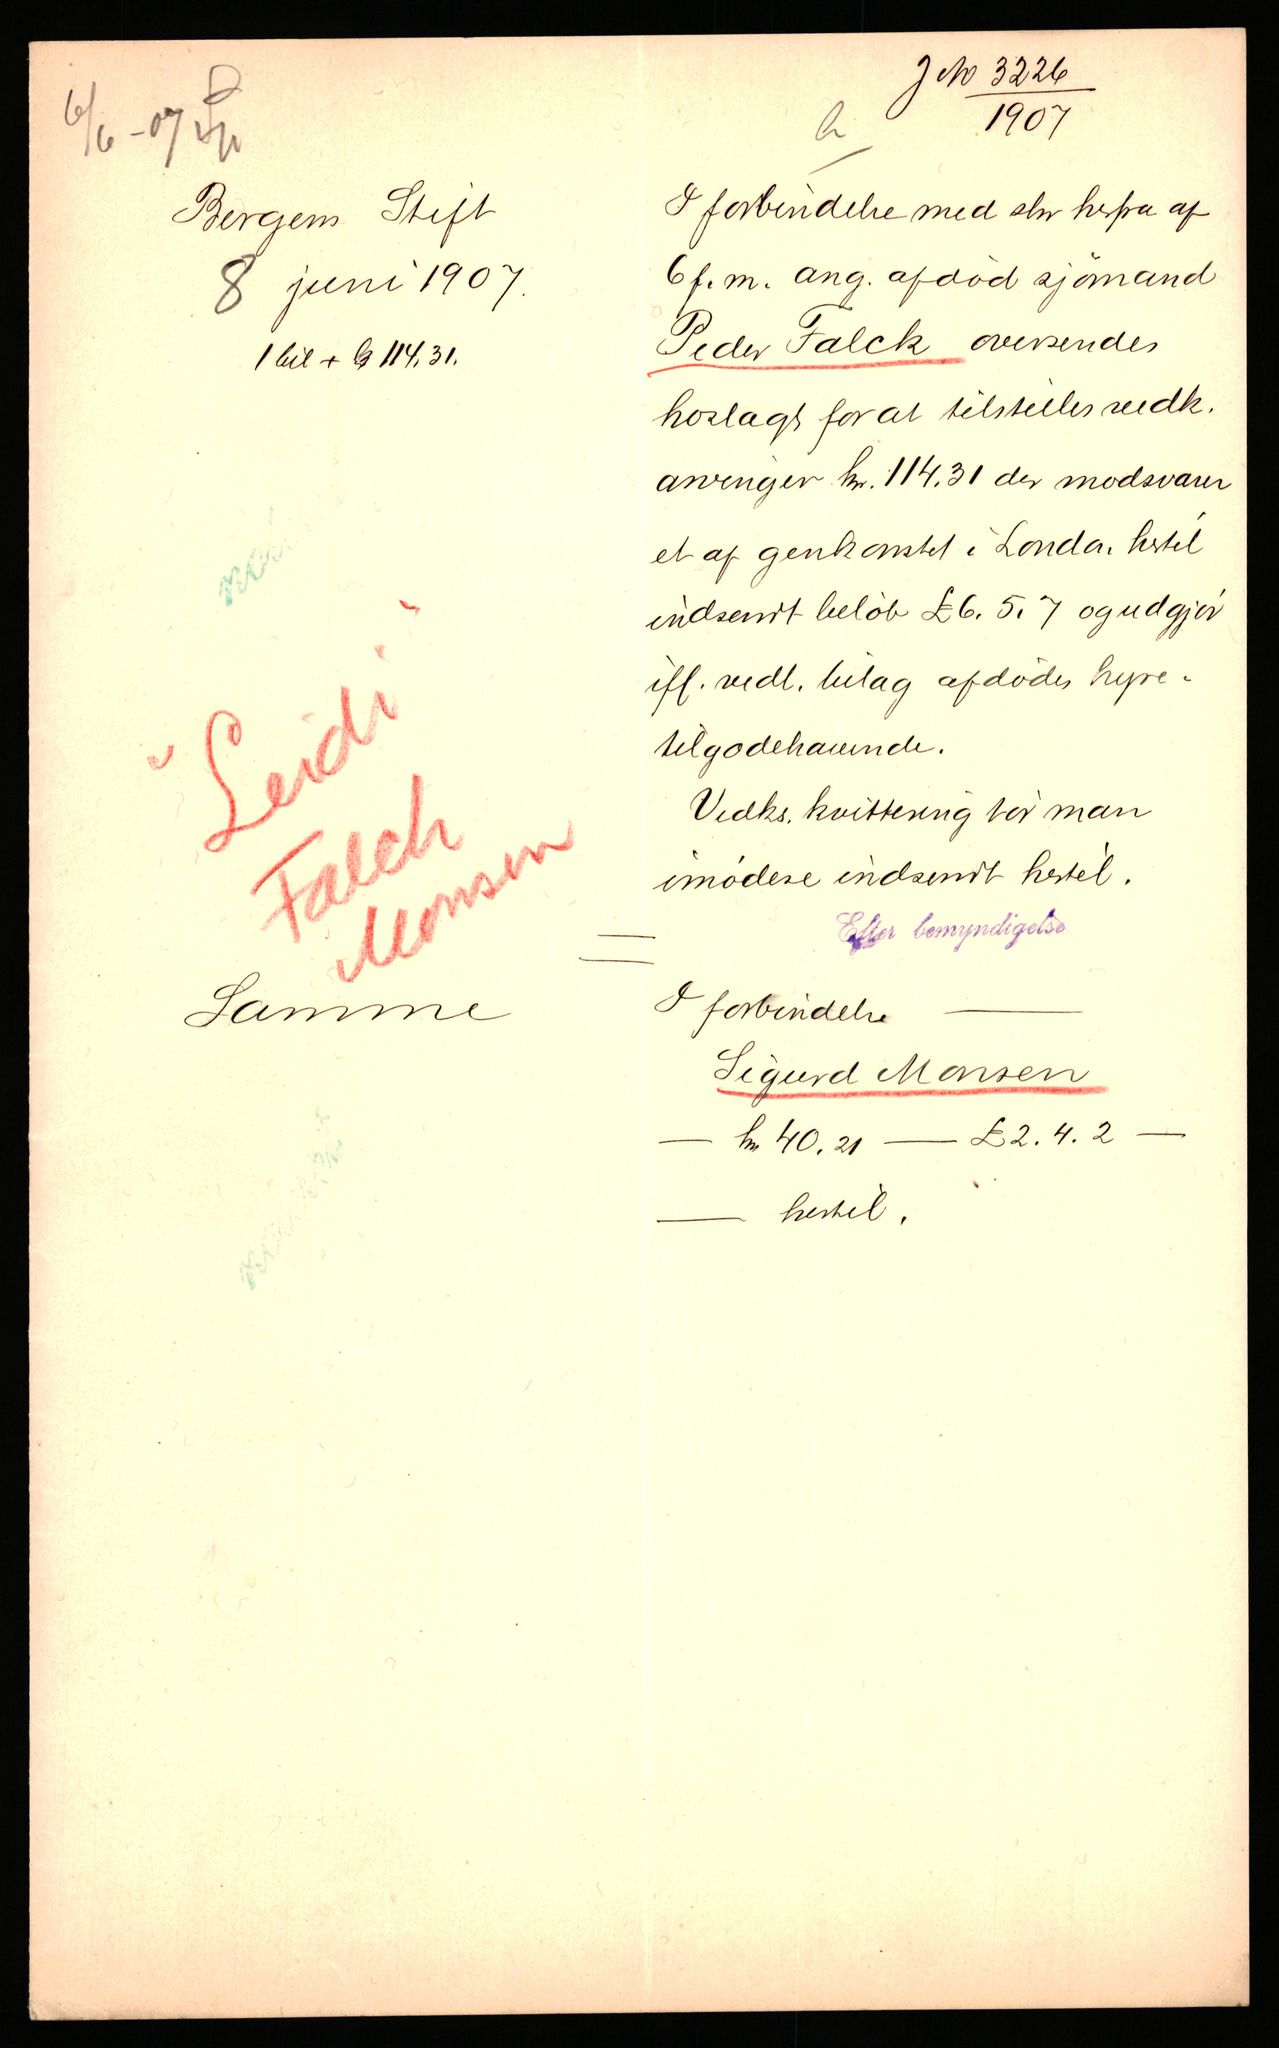 J No 3226
1907
6/6 - 07
Bergens Stift
8 juni 1907.
1 bil + kr 114.31.
"Leidi"
Falch
Monsen
I forbindelse med skr herfra af
6 f. m. ang. afdød sjømand
Peder Falck oversendes
hoslagt for at tilstilles vedk.
arvinger kr. 114.31 der modsvarer
et af genkonstet i London hertil
indsendt beløb £ 6. 5. 7 og udgjør
ifl. vedl. bilag afdødes hyre-
tilgodehavende.
Vedks. kvittering tør man
imødese indsendt hertil.
Efter bemyndigelse
Samme
I forbindelse —
Sigurd Monsen
— kr 40.21 — £ 2. 4. 2 —
— hertil.